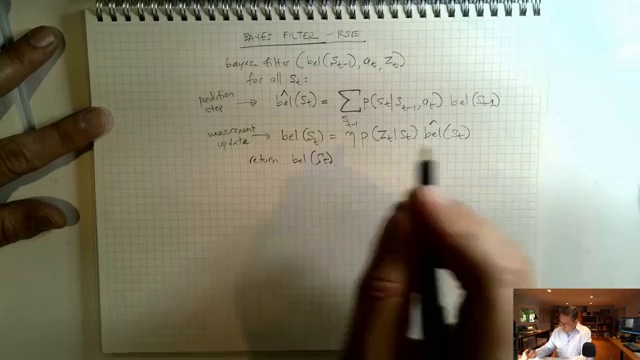 BAYES FILTER - RSE
bayes filter (bel(St-1), at, Zt)
for all St:
prediction step → bel̂(St) = ∑St-1 p(St|St-1, at) bel(St-1)
measurement update → bel(St) = η p(Zt|St) bel̂(St)
return bel(St)